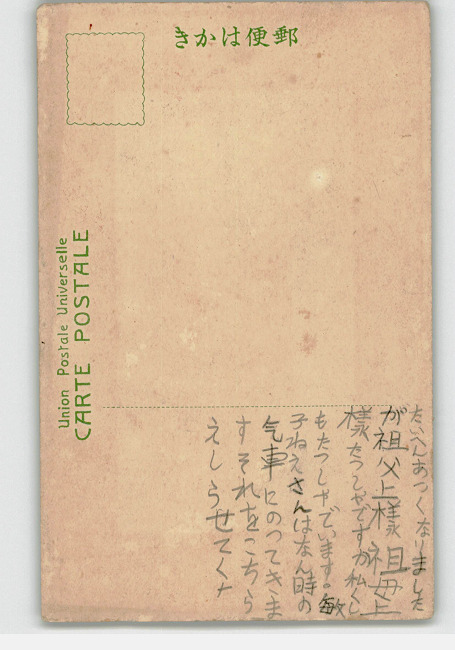 きかは便郵
Union Postale Universelle
CARTE POSTALE
たいへんあつくなりました
が祖父上様祖母上
様たつしやですか私くし
もたつしやでいます。敏
子ねえさんはなん時の
気車にのつてきま
すそれをこちら
えしらせてくだ